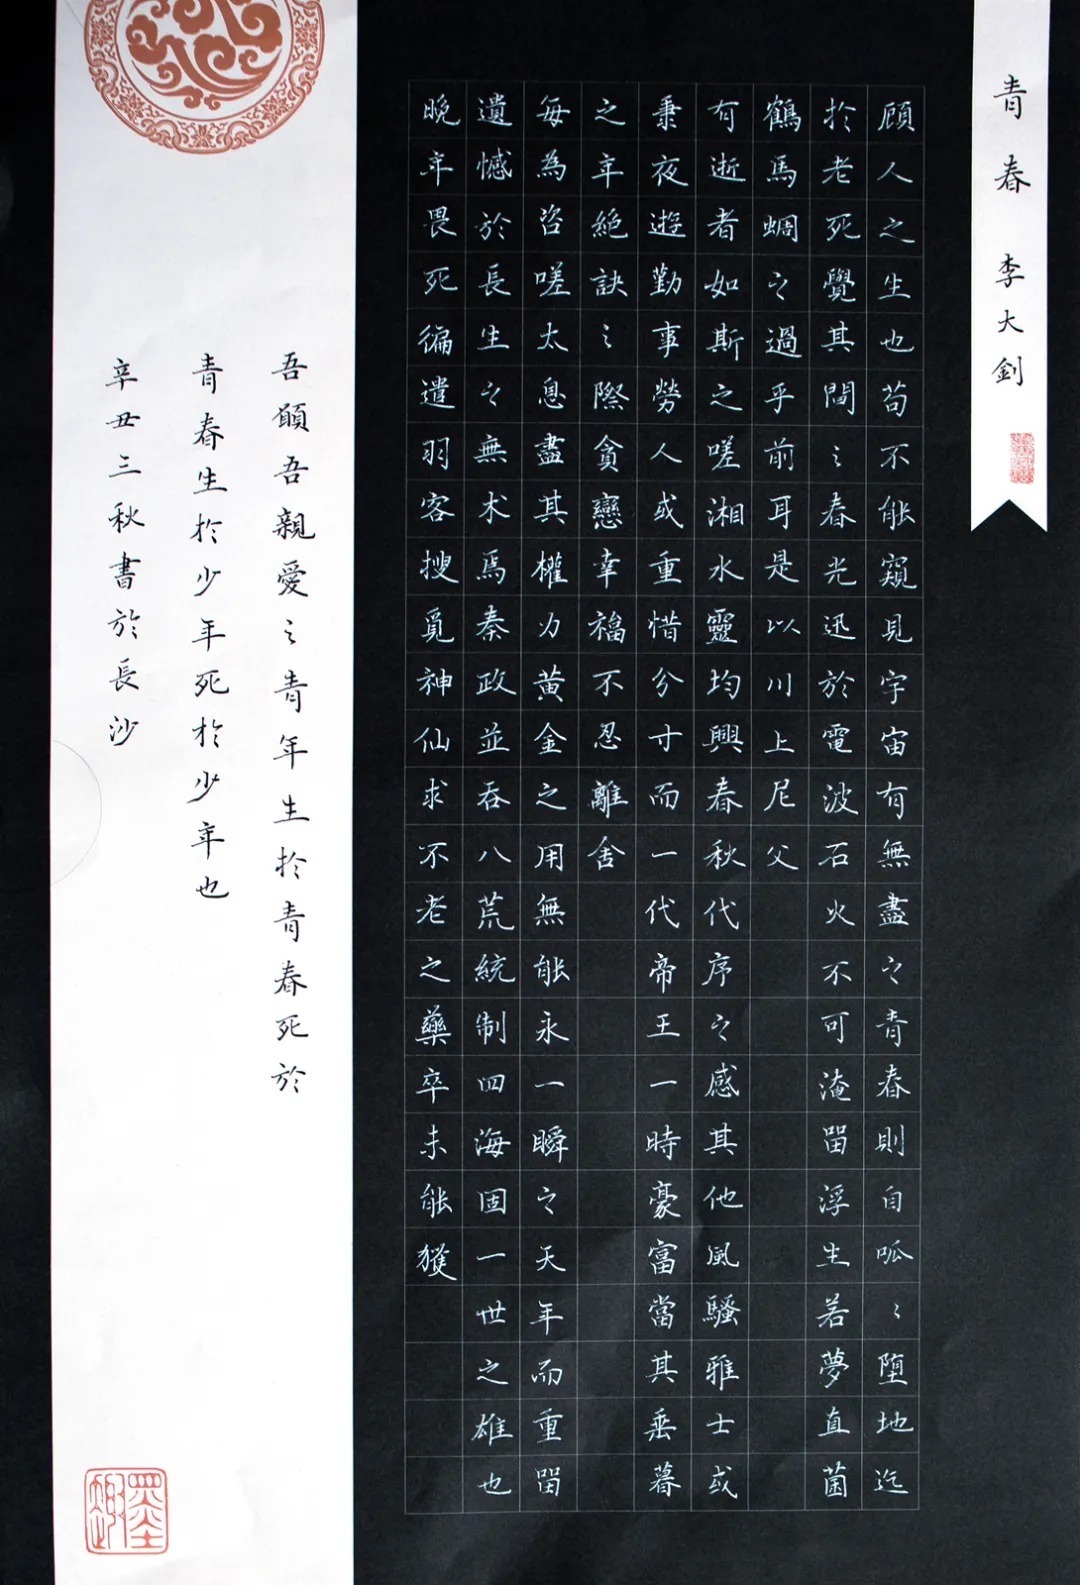 青春 李大釗
顧人之生也苟不能窺見宇宙有無盡之青春則自呱〻堕地迄
於老死覺其間〻春光迅於電波石火不可淹留浮生若夢直菌
鶴馬蜩之過乎前耳是以川上尼父
有逝者如斯之嗟湘水靈均興春秋代序之感其他風騷雅士或
秉夜遊勤事勞人或重惜分寸而一代帝王一時豪富當其垂暮
之年絕訣〻際貪戀幸福不忍離舍
每為咨嗟太息盡其權力黃金之用無能永一瞬之天年而重留
遺憾於長生之無术焉秦政並吞八荒統制四海固一世之雄也
晚年畏死徧遣羽客搜覓神仙求不老之藥卒未能獲
吾願吾親愛〻青年生於青春死於
青春生於少年死於少年也
辛丑三秋書於長沙
墨趣